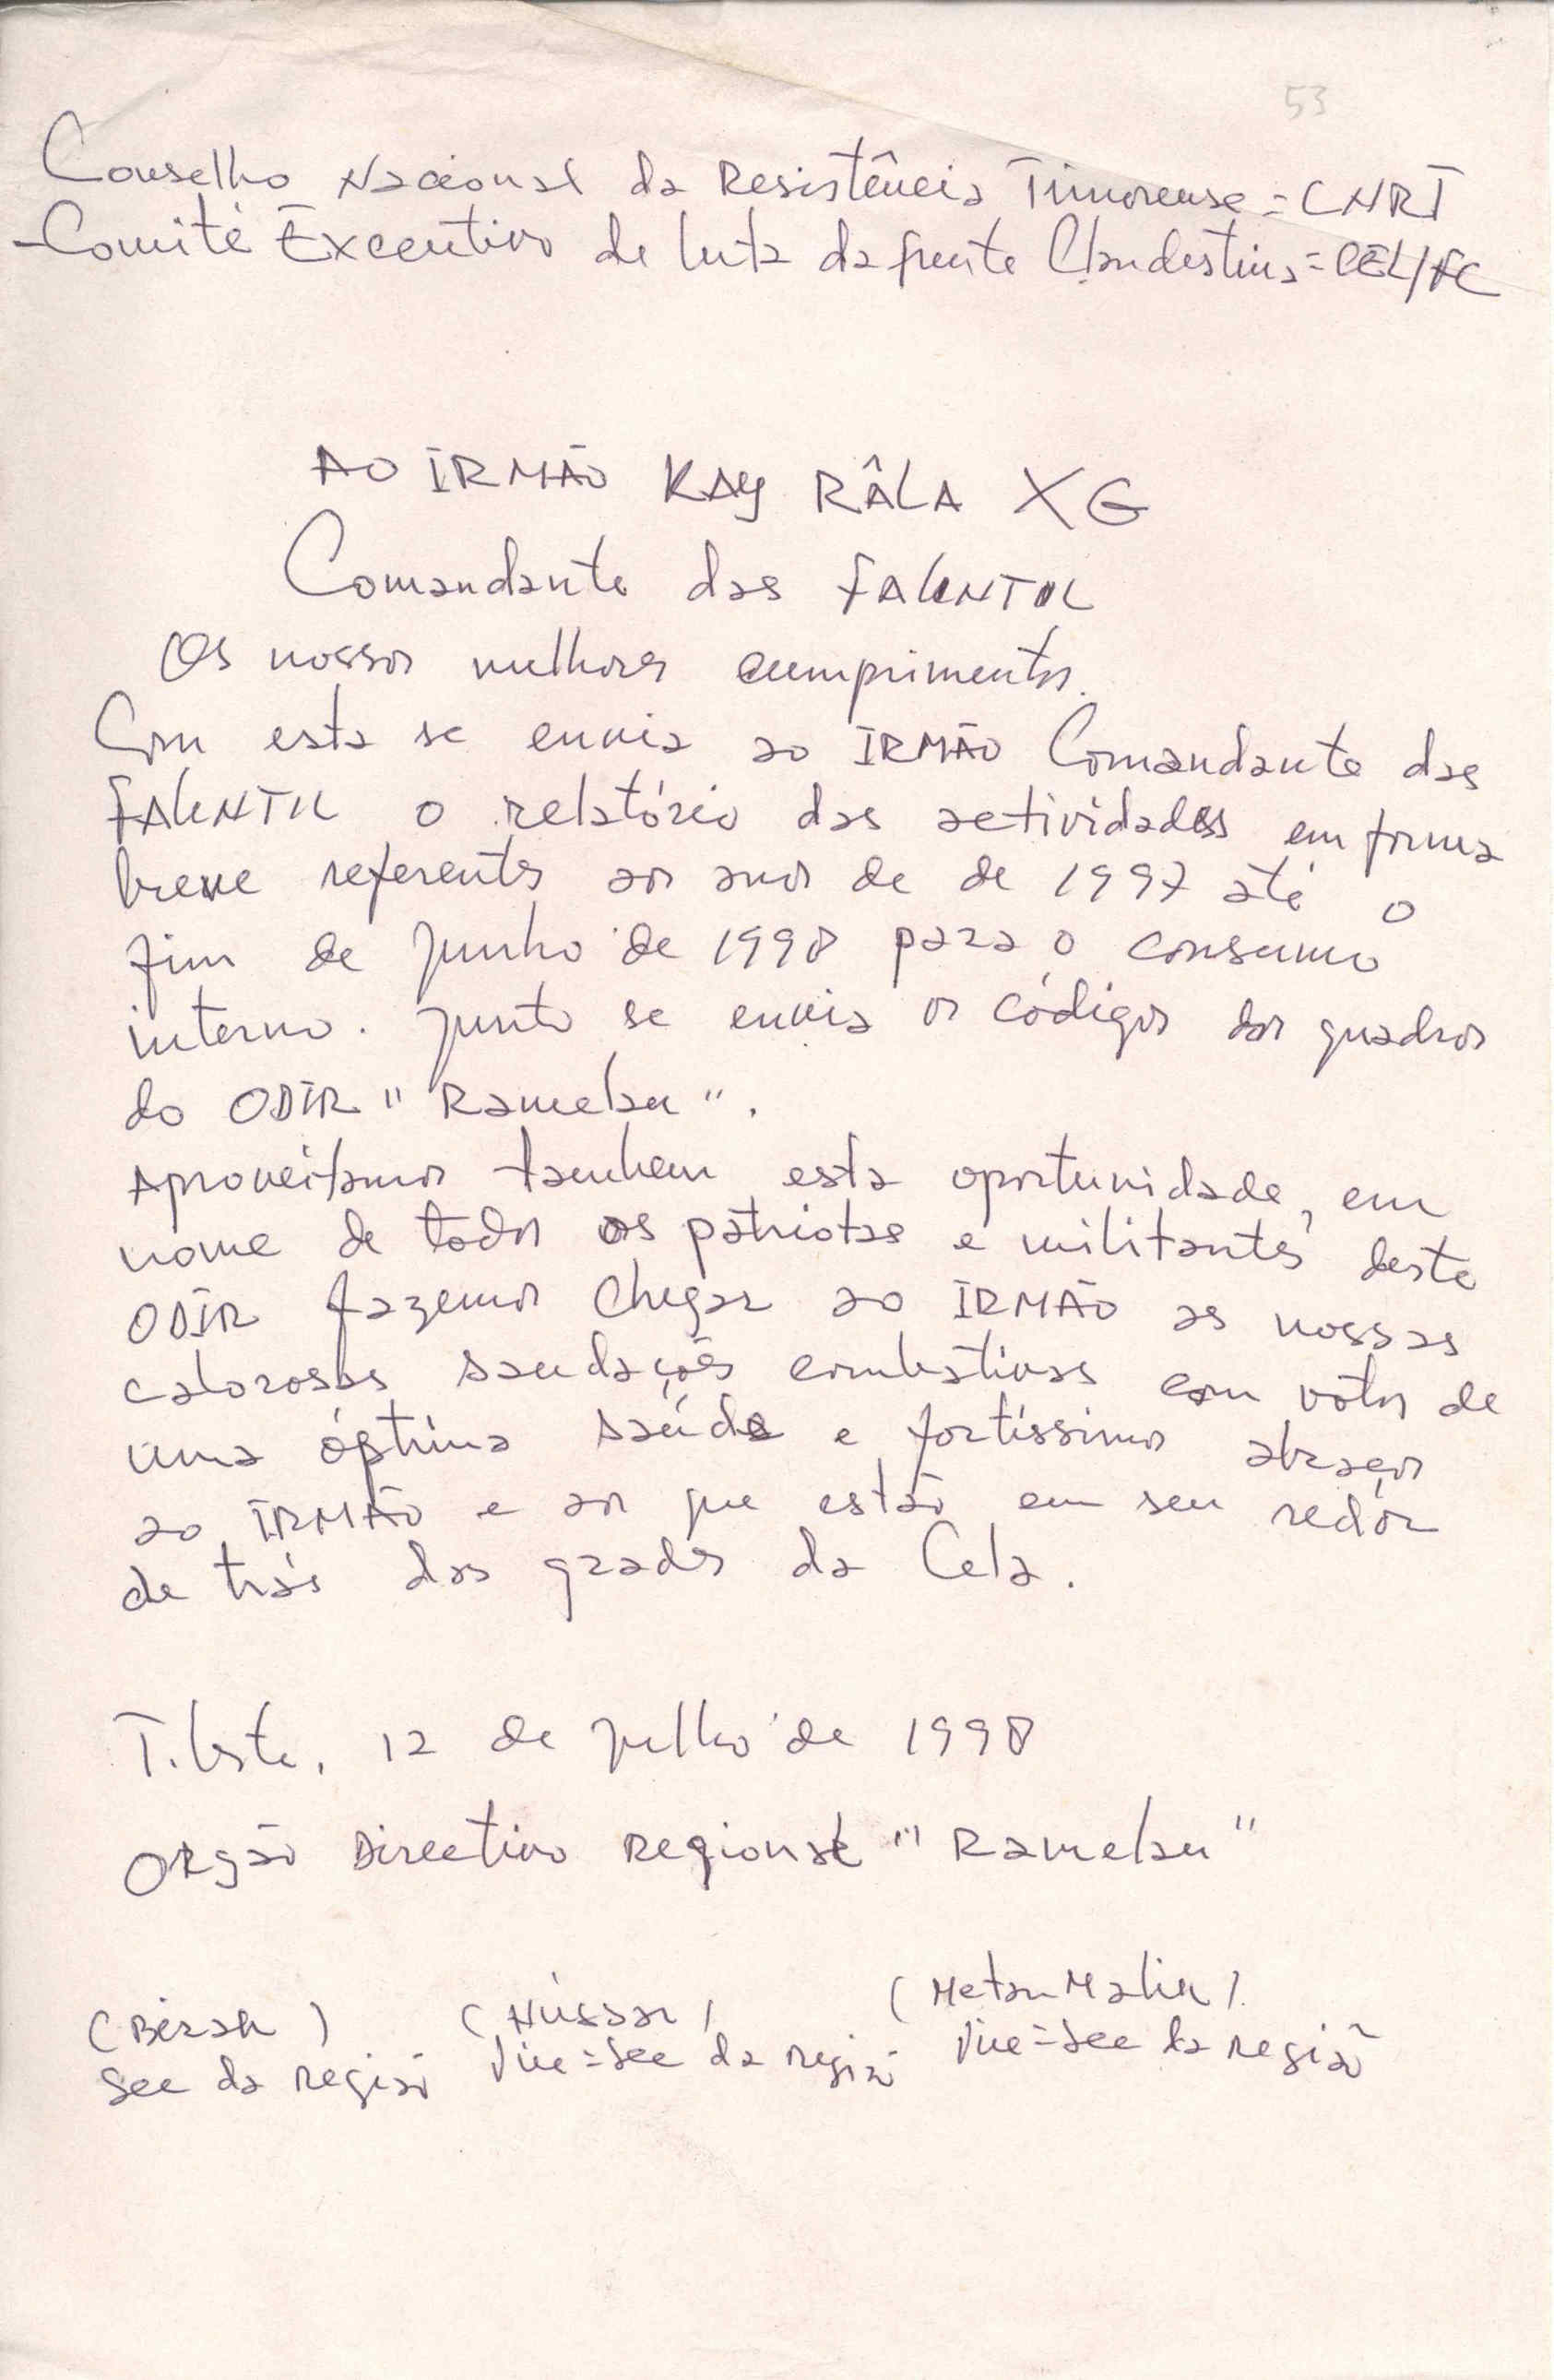 53
Conselho Nacional da Resistência Timorense = CNRT
-Comité Executivo de luta da frente Clandestina = CEL/FC
AO IRMÃO KAY RÂLA XG
Comandante das FALINTIL
Os nossos melhores cumprimentos.
Com esta se envia ao IRMÃO Comandante das
FALINTIL o relatório das actividades em forma
breve referentes aos anos de de 1997 até o
fim de Junho de 1998 para o consumo
interno. Junto se envia os códigos dos quadros
do ODIR "Ramelau".
Aproveitamos tambem esta oportunidade, em
nome de todos os patriotas e militantes deste
ODIR fazemos chegar ao IRMÃO as nossas
calorosas saudações combativas com votos de
uma óptima saúde e fortíssimos abraços
ao IRMÃO e aos que estão em seu redór
de trás das grades da Cela.
T. Leste, 12 de Julho de 1998
Orgão Directivo Regional "Ramelau"
(Metan Malik)
( ) (Nússar)
Sec da região Vice=Sec da região Vice=Sec da região